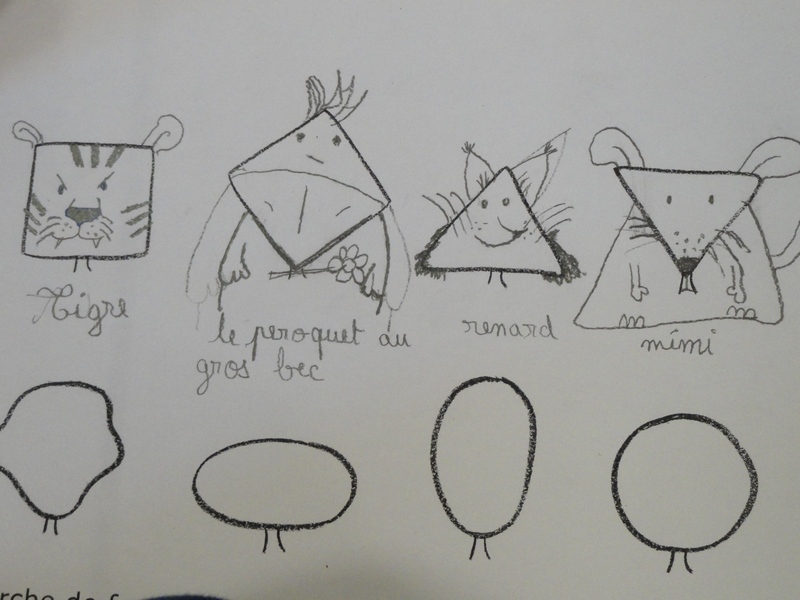 Tigre
le peroquet au
gros bec
renard
mimi